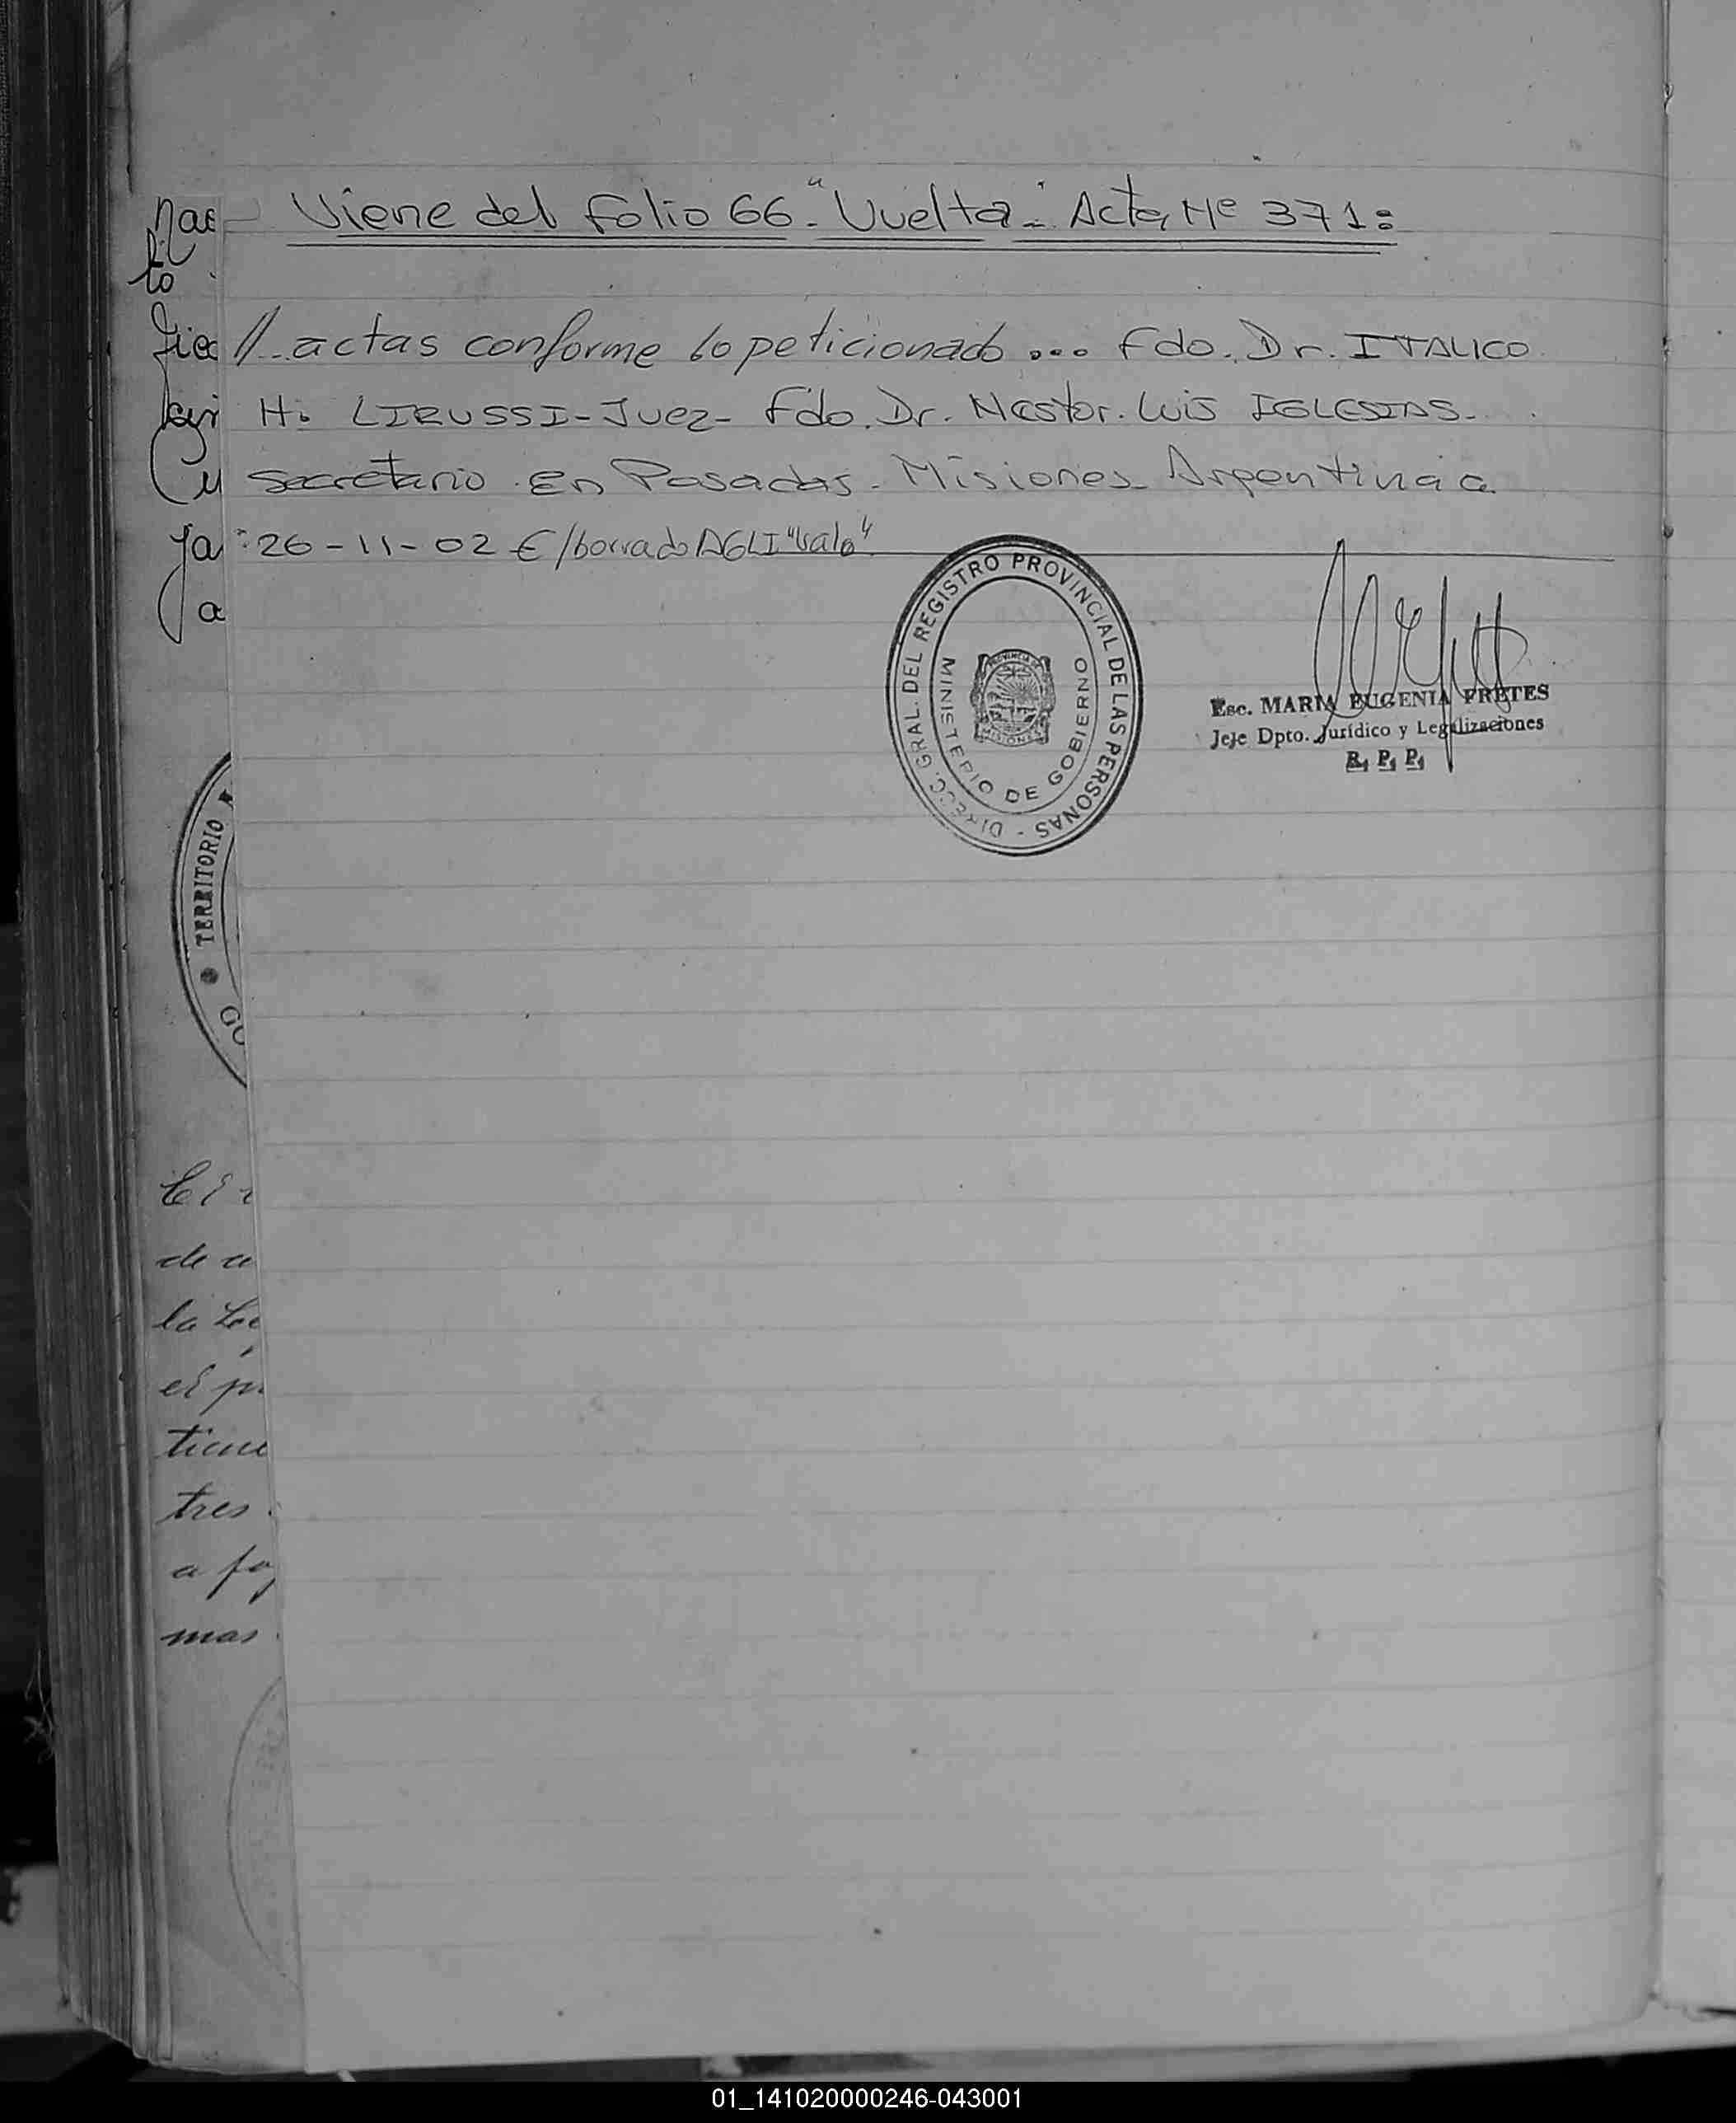 Viene del folio 66 - "Vuelta" - Acta Nº 371:
//. actas conforme lo peticionado ... Fdo. Dr. ITALICO
H. LIRUSSI - Juez - Fdo. Dr. Nestor Luis IGLESIAS -
Secretario. En Posadas - Misiones Argentina a
26-11-02 E/borrado "vale"
DIRECC. GRAL. DEL REGISTRO PROVINCIAL DE LAS PERSONAS -
MINISTERIO DE GOBIERNO
PROVINCIA DE
MISIONES
Esc. MARIA EUGENIA FRETES
Jefe Dpto. Jurídico y Legalizaciones
R. P. P.
TERRITORIO
GO
de
la
el
tiene
tres
a
mas
01_141020000246-043001